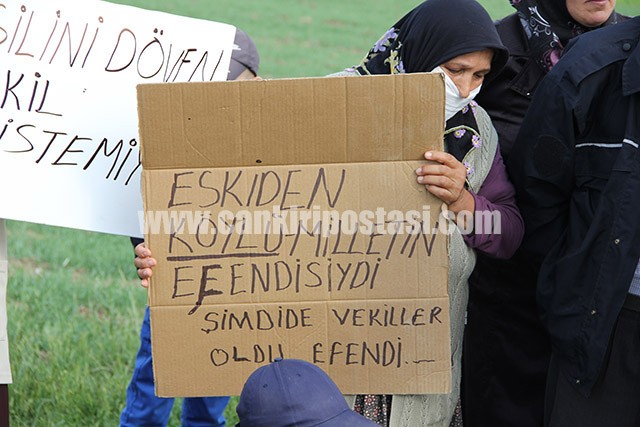 SİLİNİ DÖVEN
KİL
İSTEMİY
ESKİDEN
KÖYLÜ MİLLETİN
EFENDİSİYDİ
ŞİMDİDE VEKİLLER
OLDU EFENDİ...
www.sankiripostasi.com